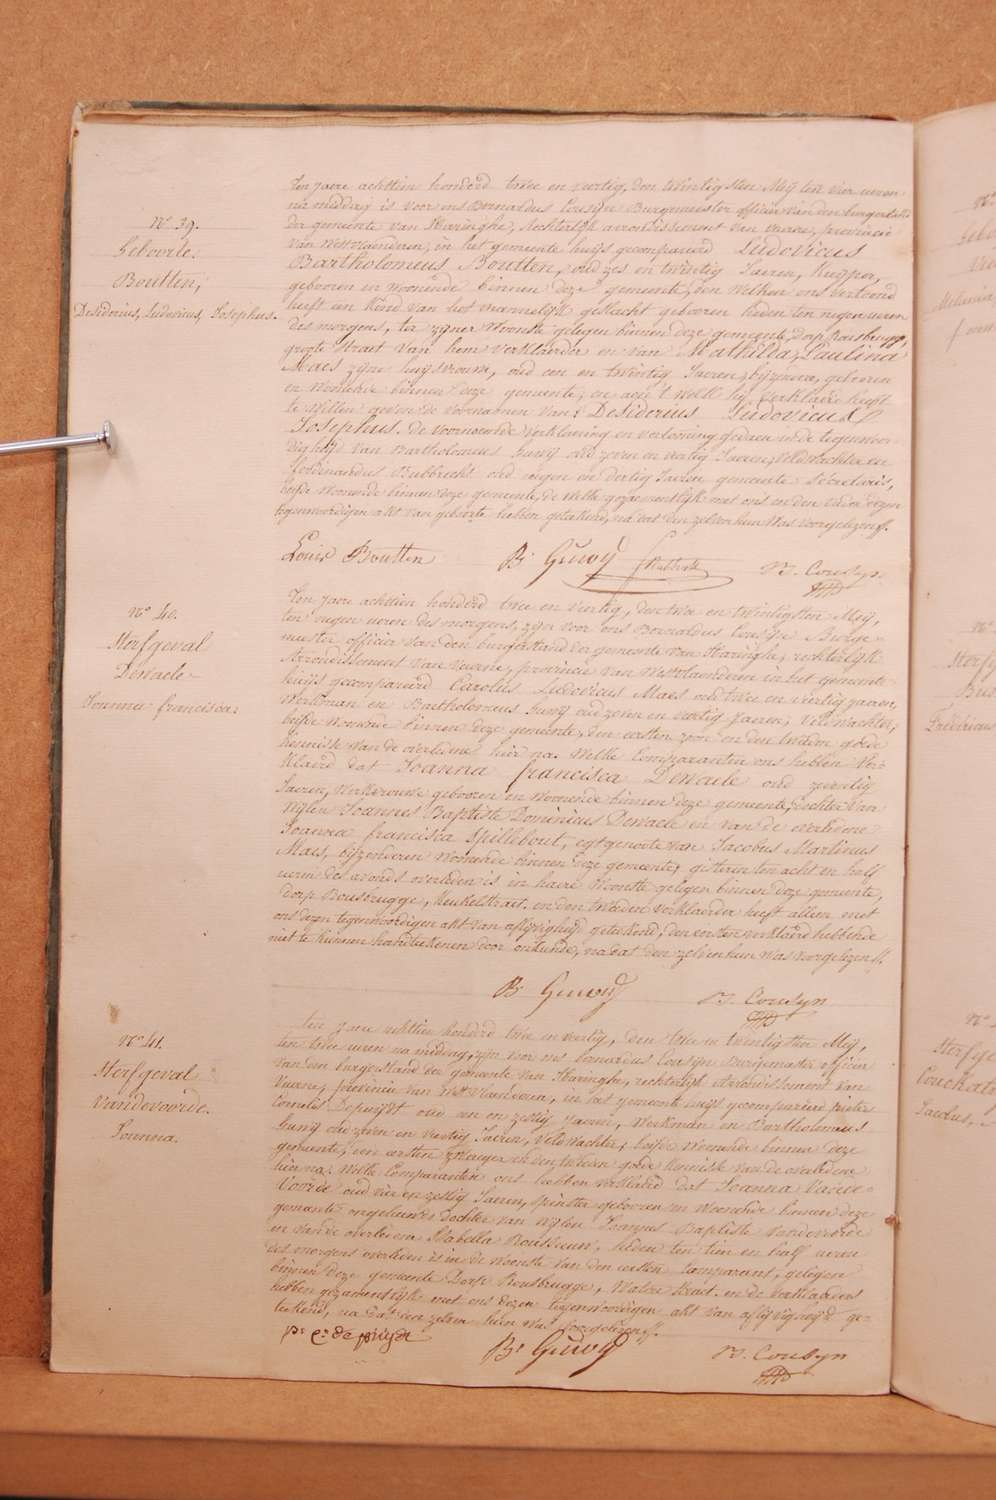 N° 39.
Geboorte.
Boutten,
Desiderius, Ludovicus, Josephus.
Ten jaere achttien honderd twee en veertig, den twintigsten Meij ten vier ueren
na middag is voor ons Bernardus Cousyn Burgemeester officier van den burgerstand
der gemeente van Haringhe, rechterlijk arrondissement van veurne, provincie
van Westvlaenderen, in het gemeente huijs gecompareerd Ludovicus
Bartholomeus Boutten, oud zes en twintig Jaeren, kuijper,
gebooren en woonende binnen deze gemeente, den welken ons vertoond
heeft een kind van het mannelijk geslacht gebooren heden ten negen ueren
des morgens, ter zijner woonste gelegen binnen deze gemeente, dorp Rousbrugge,
groote straet van hem verklaerder en van Mathilda Paulina
Maes zijne huijsvrouw, oud een en twintig Jaeren, bijzondere, gebooren
en woonende binnen deze gemeente, en aen 't welk hij verklaerd heeft
te willen geven de voornaemen van Desiderius Ludovicus
Josephus. de voornoemde verklaering en vertooning gedaen in de tegenwoor-
digheijd van Bartholomeus Guwij oud zeven en veertig Jaeren, veldwachter en
ferdinandus Rubbrecht oud negen en dertig Jaeren gemeente secretaris,
beijde woonende binnen deze gemeente, de welke gezamentlijk met ons en den vader dezen
tegenwoordigen akt van geboorte hebben geteekend, na dat den zelven hun was voorgelezen.
Louis Boutten B. Guwij fRubbrecht B. Cousyn
N° 40.
Sterfgeval
Dewaele
Joanna francisca.
Ten jaere achttien honderd twee en veertig, den twee en twintigsten Meij,
ten negen ueren des morgens, zijn voor ons Bernardus Cousyn Burge-
meester officier van den burgerstand der gemeente van Haringhe, rechterlijk
Arrondissement van veurne, provincie van Westvlaenderen in het gemeente
huijs gecompareerd Carolus Ludovicus Maes oud twee en veertig jaeren,
werkman en Bartholomeus Guwij oud zeven en veertig jaeren, veldwachter,
beijde woonende binnen deze gemeente, den eersten zoon en den tweeden goede
kennisse van de overledene hier na. Welke Comparanten ons hebben ver-
klaerd dat Joanna francisca Dewaele oud zeventig
Jaeren, werkvrouwe gebooren en woonende binnen deze gemeente, dochter van
wijlen Joannes Baptiste Dominicus Dewaele en van de overledene
Joanna francisca Spillebout, egtgenoote van Jacobus Martinus
Maes, bijzonderen woonende binnen deze gemeente, gisteren ten acht en half
ueren des avonds overleden is in haere woonste gelegen binnen deze gemeente,
dorp Rousbrugge, keukelstraet. en den tweeden verklaerder heeft alleen met
ons dezen tegenwoordigen akt van aflijvigheijd geteekend, den eersten verklaerd hebbende
niet te kunnen handteekenen door onkunde, na dat den zelven hun was voorgelezen.
B. Guwij B. Cousyn
N° 41.
Sterfgeval
Vandevoorde.
Joanna.
Ten jaere achttien honderd twee en veertig, den twee en twintigsten Meij,
ten twee ueren na middag, zijn voor ons bernardus Cousyn Burgemeester officier
van den burgerstand der gemeente van Haringhe, rechterlijk Arrondissement van
Veurne, provincie van Westvlaenderen, in het gemeente huijs gecompareerd pieter
Cornelis Depuijdt oud een en zestig jaeren, werkman en Bartholomeus
Guwij oud zeven en veertig Jaeren, veldwachter, beijde woonende binnen deze
gemeente, den eersten zwaeger en den tweeden goede kennisse van de overledene
hier na. Welke Comparanten ons hebben verklaerd dat Joanna Vande-
Voorde oud vier en zestig Jaeren, spinster gebooren en woonende binnen deze
gemeente ongehuwde dochter van wijlen Joannes Baptiste vandevoorde
en van de overledene Isabella Rousseeuw, heden ten tien en half ueren
des morgens overleden is in de woonste van den eersten Comparant, gelegen
binnen deze gemeente Dorp Rousbrugge, Water straet. en de verklaerders
hebben gezamentlijk met ons dezen tegenwoordigen akt van aflijvigheijd ge-
teekend, na dat den zelven hun was voorgelezen.
pr. Cs. de puijdt B. Guwij B. Cousyn